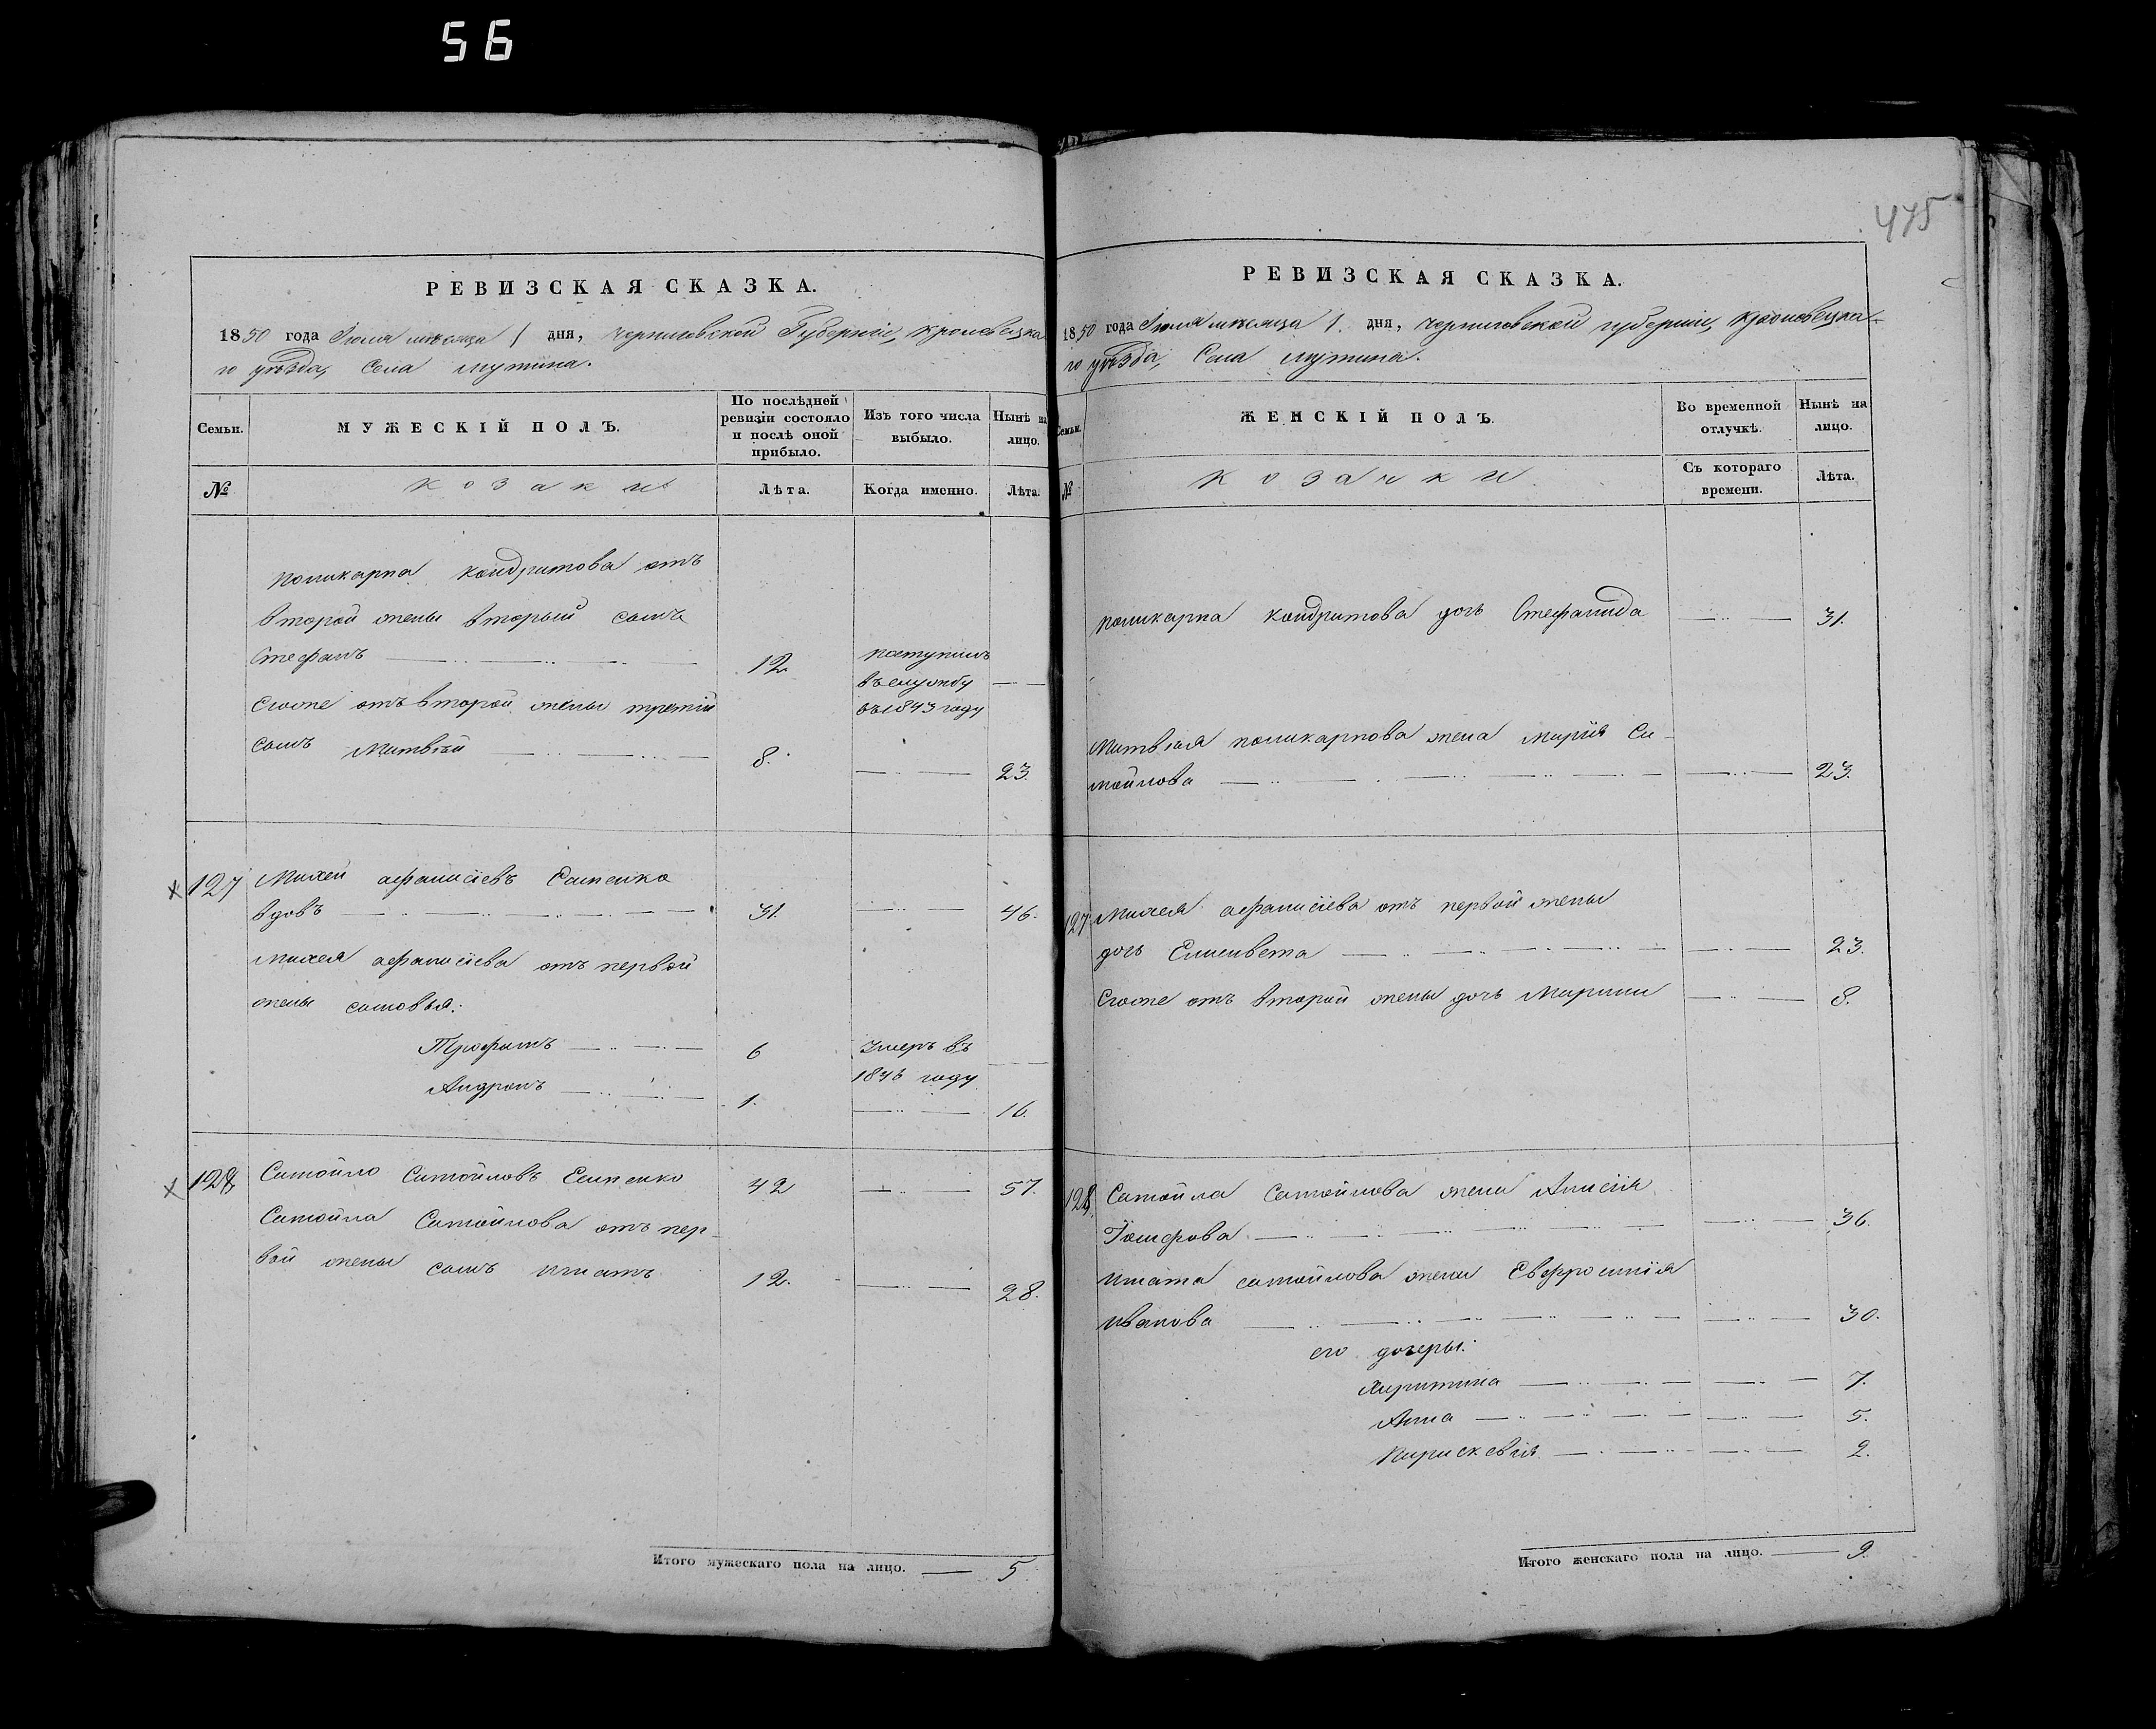 56
475
РЕВИЗСКАЯ СКАЗКА.
1850 года Іюля мѣсяца 1 дня, Черниговской Губерніи, Кролевецка
го уѣзда, Села Мутина.
Семьи.
МУЖЕСКІЙ ПОЛЪ.
По послѣдней ревизіи состояло и послѣ оной прибыло.
Изъ того числа выбыло.
Нынѣ на лицо.
№
Козаки
Лѣта.
Когда именно.
Лѣта.
Поликарпа Кондратова отъ
второй жены вторый сынъ
Стефанъ 12 поступилъ
въ службу
въ 1843 году
Егоже отъ второй жены третій
сынъ Матвѣй 8. 23.
127 Михей Афанасіевъ Есипенко
вдовъ 31. 46.
Михея Афанасіева отъ первой
жены сыновья:
Трофимъ 6 умеръ въ
1846 году
Андронъ 1. 16.
128 Самойло Самойловъ Есипенко 42 57.
Самойла Самойлова отъ пер-
вой жены сынъ Игнатъ 12. 28.
Итого мужескаго пола на лицо. 5
РЕВИЗСКАЯ СКАЗКА.
1850 года Іюля мѣсяца 1. дня, Черниговской губерніи, Кролевецка-
го уѣзда, Села Мутина.
Семьи.
ЖЕНСКІЙ ПОЛЪ.
Во временной отлучкѣ.
Нынѣ на лицо.
№
Козачки
Съ котораго времени.
Лѣта.
Поликарпа Кондратова дочь Стефанида 31.
Матвѣя Поликарпова жена Марія Са-
мойлова 23.
127 Михея Афанасіева отъ первой жены
дочь Елисавета 23.
Егоже отъ второй жены дочь Марина 8.
128 Самойла Самойлова жена
Іосифова 36.
Игната Самойлова жена Евфросинія
Иванова 30.
его дочеры:
Харитина 7.
Анна 5.
Параскевія 2.
Итого женскаго пола на лицо. 9.